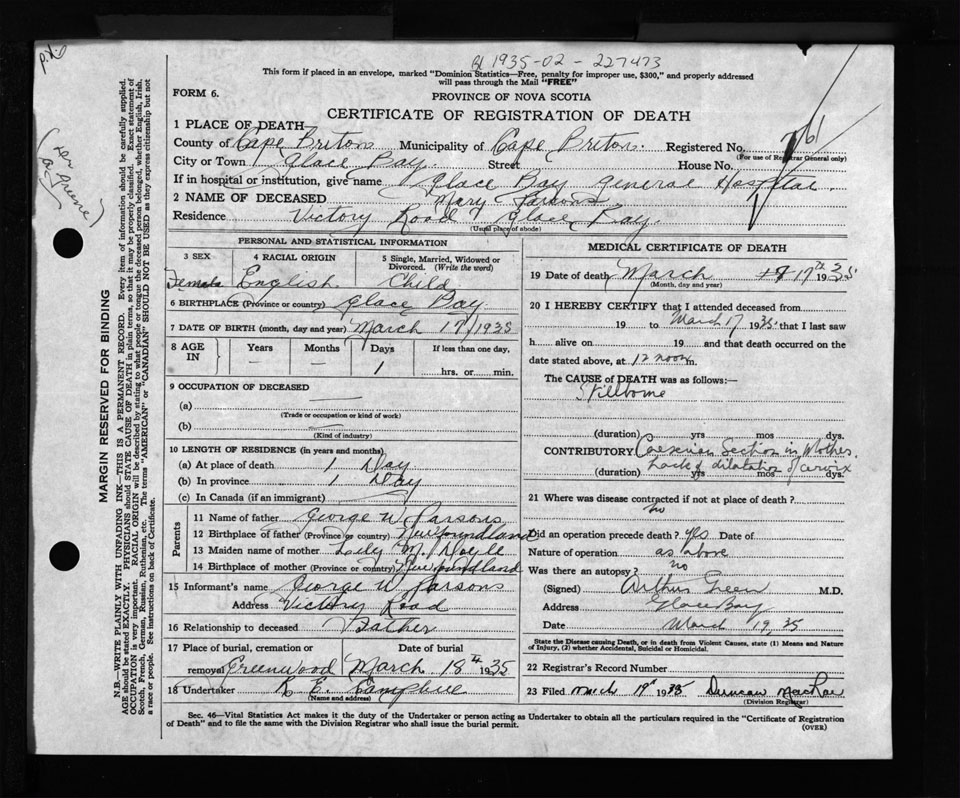 1935-02-227473
This form if placed in an envelope, marked "Dominion Statistics—Free, penalty for improper use, $300," and properly addressed
will pass through the Mail "FREE"
FORM 6.
PROVINCE OF NOVA SCOTIA
CERTIFICATE OF REGISTRATION OF DEATH
1 PLACE OF DEATH—
County of Cape Breton Municipality of Cape Breton. Registered No. 761
(For use of Registrar General only)
City or Town Glace Bay. Street House No.
If in hospital or institution, give name Glace Bay General Hospital.
2 NAME OF DECEASED Mary Parsons
Residence Victory Road Glace Bay.
(Usual place of abode)
PERSONAL AND STATISTICAL INFORMATION
3 SEX 4 RACIAL ORIGIN 5 Single, Married, Widowed or
Divorced. (Write the word)
Female English Child
6 BIRTHPLACE (Province or country) Glace Bay.
7 DATE OF BIRTH (month, day and year) March 17, 1935
8 AGE IN Years Months Days If less than one day,
— — 1 hrs. or min.
9 OCCUPATION OF DECEASED
(a) —
(Trade or occupation or kind of work)
(b) —
(Kind of industry)
10 LENGTH OF RESIDENCE (in years and months)
(a) At place of death 1 Day
(b) In province 1 Day
(c) In Canada (if an immigrant)
Parents
11 Name of father George W Parsons
12 Birthplace of father (Province or country) Newfoundland
13 Maiden name of mother Lily M. Doyle
14 Birthplace of mother (Province or country) Newfoundland
15 Informant's name George W Parsons
Address Victory Road
16 Relationship to deceased Father
17 Place of burial, cremation or Date of burial
removal Greenwood March 18th 1935
18 Undertaker R E
(Name and address)
MEDICAL CERTIFICATE OF DEATH
19 Date of death March 17th 1935
(Month, day and year)
20 I HEREBY CERTIFY that I attended deceased from
19 to March 17 1935 that I last saw
h alive on 19 and that death occurred on the
date stated above, at 12 noon m.
The CAUSE of DEATH was as follows:—
Stillborne
(duration) yrs mos dys.
CONTRIBUTORY Caeserian Section in Mother.
Lack of dilatation of cervix
(duration) yrs mos dys.
21 Where was disease contracted if not at place of death?
no
Did an operation precede death? yes Date of
Nature of operation as above
Was there an autopsy? no
(Signed) Arthur Green M.D.
Address Glace Bay
Date March 19, 35
State the Disease causing Death, or in death from Violent Causes, state (1) Means and Nature
of Injury, (2) whether Accidental, Suicidal or Homicidal.
22 Registrar's Record Number
23 Filed March 19th 1935 Duncan MacRae
(Division Registrar)
Sec. 46—Vital Statistics Act makes it the duty of the Undertaker or person acting as Undertaker to obtain all the particulars required in the "Certificate of Registration
of Death" and to file the same with the Division Registrar who shall issue the burial permit.
(OVER)
MARGIN RESERVED FOR BINDING
N.B.—WRITE PLAINLY WITH UNFADING INK—THIS IS A PERMANENT RECORD. Every item of information should be carefully supplied.
AGE should be stated EXACTLY. PHYSICIANS should STATE CAUSE OF DEATH in plain terms, so that it may be properly classified. Exact statement of
OCCUPATION is very important. RACIAL ORIGIN will be described by stating to what people or tongue the deceased person belonged, whether English, Irish,
Scotch, French, German, Russian, Ruthenian, etc. The terms "AMERICAN" or "CANADIAN" SHOULD NOT BE USED as they express citizenship but not
a race or people. See instructions on back of Certificate.